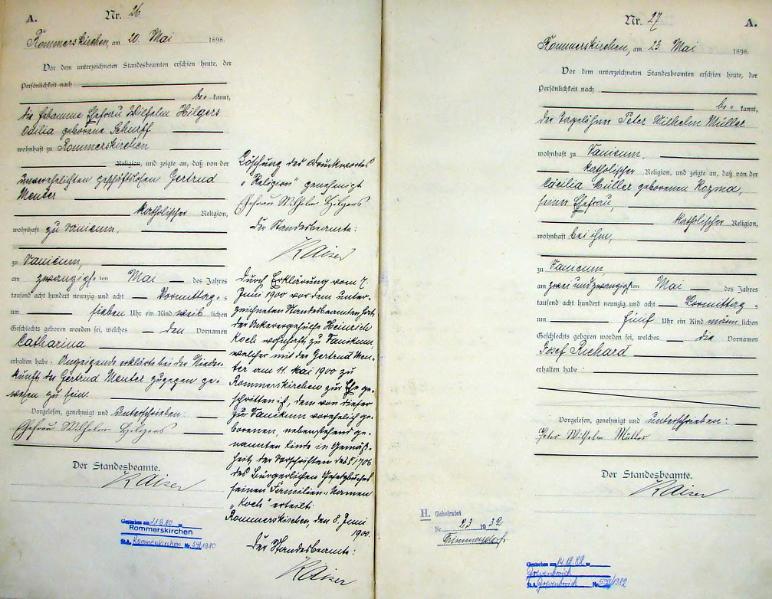 A.
Nr. 26
Rommerskirchen, am 20. Mai 1898.
Vor dem unterzeichneten Standesbeamten erschien heute, der
Persönlichkeit nach
be= kannt,
die Hebamme Ehefrau Wilhelm Hilgers
Cäcilia geborene Schurff
wohnhaft zu Rommerskirchen
Religion, und zeigte an, daß von der
unverehelichten geschäftslosen Gertrud
Menter
katholischer Religion,
wohnhaft zu Vanicum,
zu Vanicum,
am zwanzigsten Mai des Jahres
tausend acht hundert neunzig und acht Vormittags
um sieben Uhr ein Kind weiblichen
Geschlechts geboren worden sei, welches den Vornamen
Catharina
erhalten habe. Anzeigende erklärte bei der Nieder-
kunft der Gertrud Menter zugegen ge-
wesen zu sein.
Vorgelesen, genehmigt und unterschrieben:
Ehefrau Wilhelm Hilgers
Der Standesbeamte.
Kaiser
Gestorben am
Rommerskirchen
St.A. Rommerskirchen Nr.
Löschung des Druckwortes
„Religion" genehmigt
Ehefrau Wilhelm Hilgers
Der Standesbeamte:
Kaiser
Durch Erklärung vom 7.
Juni 1900 vor dem unter-
zeichneten Standesbeamten, hat
der Ackerergehülfe Heinrich
Koch wohnhaft zu Vanikum
welcher mit der Gertrud Men-
ter am 11. Mai 1900 zu
Rommerskirchen zur Ehe ge-
schritten ist, dem von dieser
zu Vanikum vorehelich ge-
borenen, nebenstehend ge-
nannten Kinde in Gemäß-
heit der Vorschriften des § 1706
des Bürgerlichen Gesetzbuches
seinen Familien-Namen
„Koch" erteilt.
Rommerskirchen, den 8. Juni
1900.
Der Standesbeamte:
Kaiser
Nr. 27
A.
Rommerskirchen, am 23. Mai 1898.
Vor dem unterzeichneten Standesbeamten erschien heute, der
Persönlichkeit nach
be= kannt,
der Peter Wilhelm Müller
wohnhaft zu Vanicum,
katholischer Religion, und zeigte an, daß von der
Cäcilia Müller geborenen
seiner Ehefrau,
katholischer Religion,
wohnhaft bei ihm,
zu Vanicum
am zwei und zwanzigsten Mai des Jahres
tausend acht hundert neunzig und acht Vormittags
um fünf Uhr ein Kind männlichen
Geschlechts geboren worden sei, welches die Vornamen
Josef Richard
erhalten habe.
Vorgelesen, genehmigt und unterschrieben:
Peter Wilhelm Müller
Der Standesbeamte.
Kaiser
H. Geheiratet
Nr. 23 1932
Gestorben am
Grevenbroich
Grevenbroich Nr.